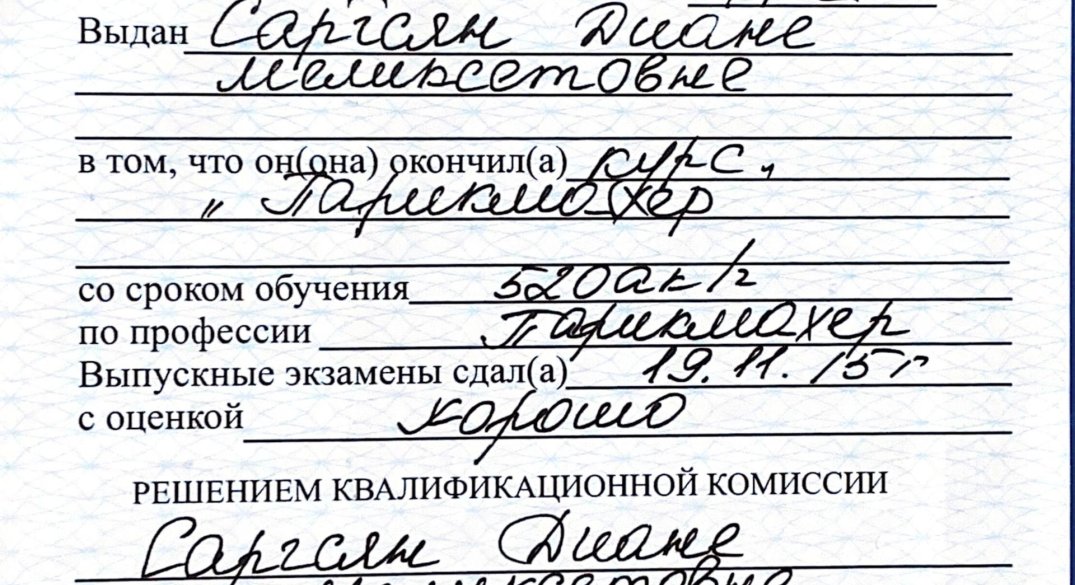 Выдан Саргсян Диане
Меликсетовне
в том, что он(она) окончил(а) курс „
„ Парикмахер
со сроком обучения 520 ак/г
по профессии Парикмахер
Выпускные экзамены сдал(а) 19.11.15г
с оценкой хорошо
РЕШЕНИЕМ КВАЛИФИКАЦИОННОЙ КОМИССИИ
Саргсян Диане
Меликсетовне